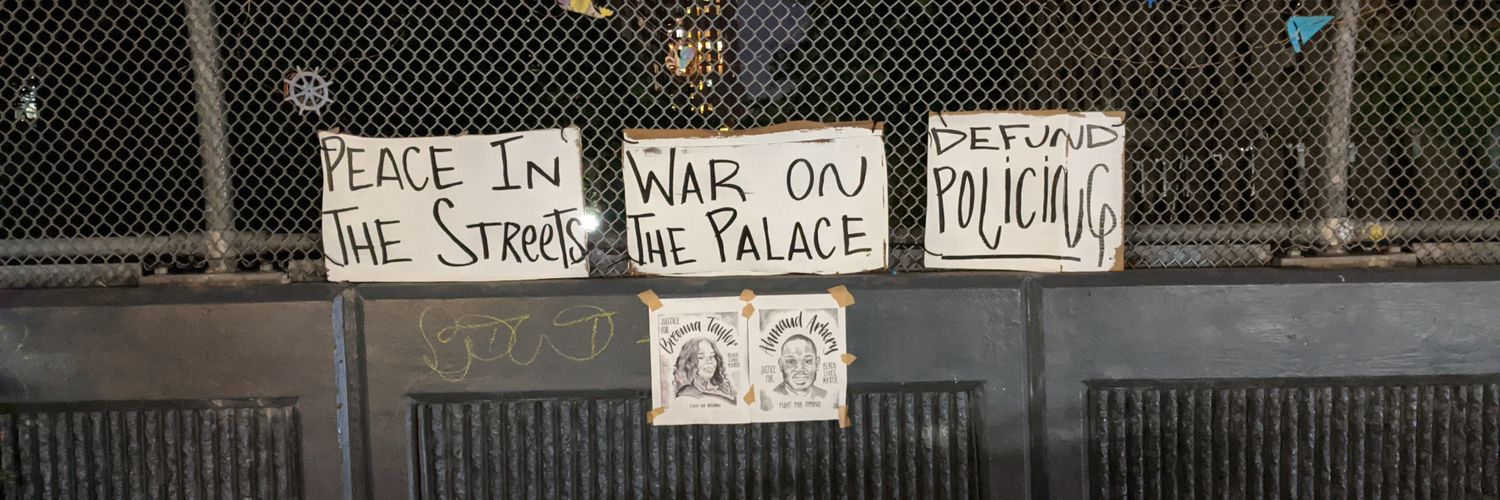 PEACE IN
THE STREETS
WAR ON
THE PALACE
DEFUND
POLICING
JUSTICE
FOR
Breonna Taylor
BLACK
LIVES
MATTER
FIGHT FOR BREONNA
Ahmaud Arbery
JUSTICE
FOR
BLACK
LIVES
MATTER
FIGHT FOR AHMAUD